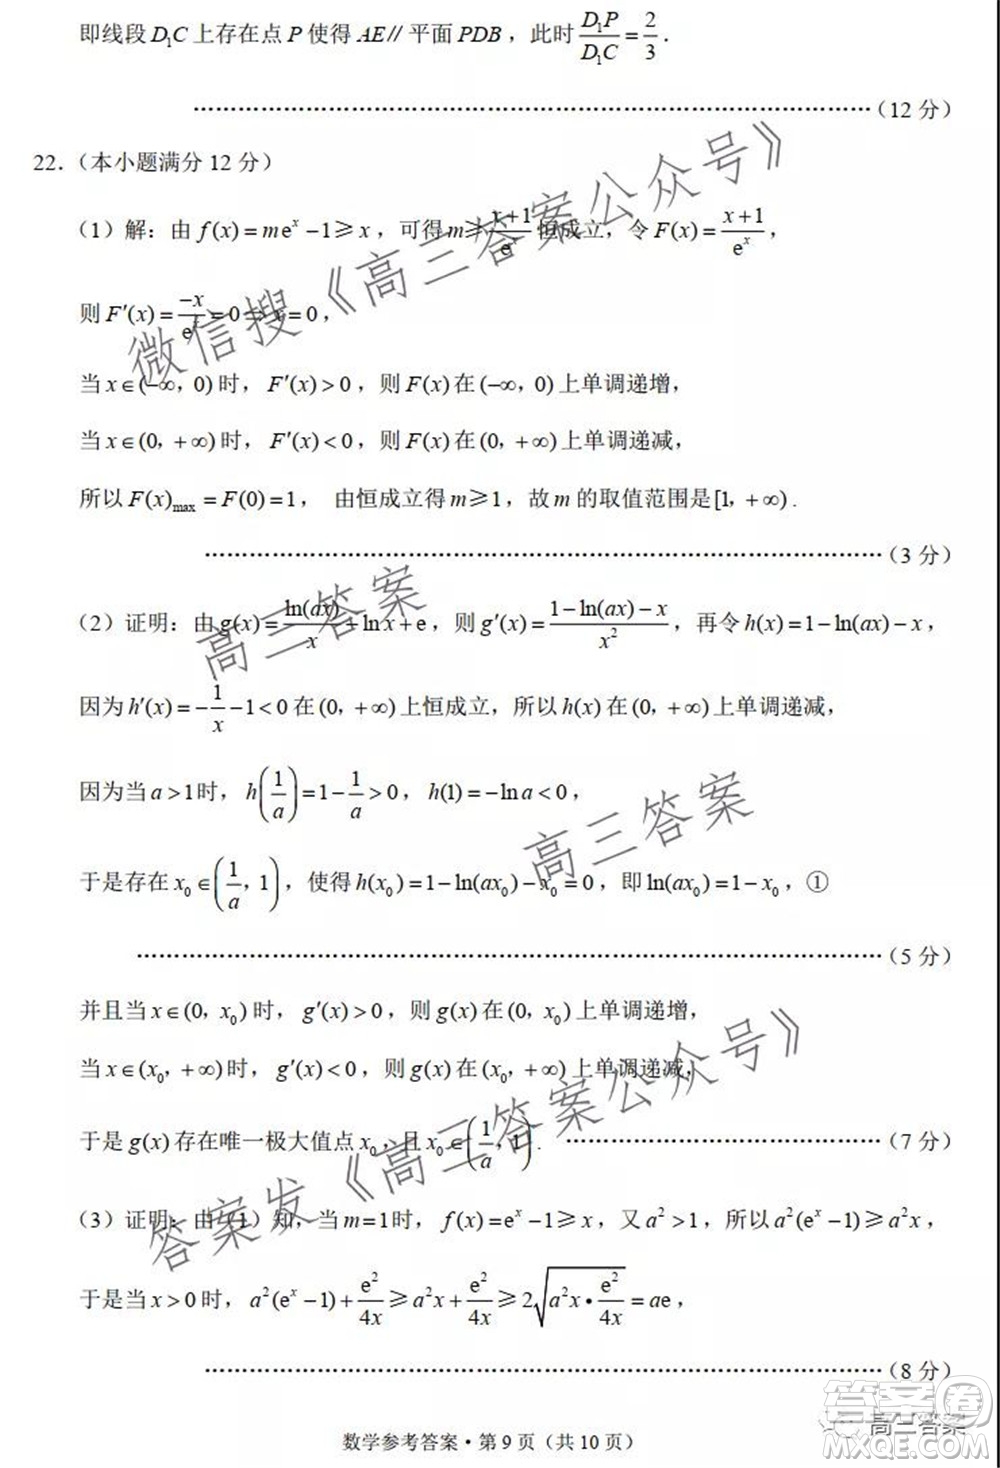 即线段 D₁C 上存在点 P 使得 AE∥ 平面 PDB，此时 D₁P/D₁C = 2/3．
……………………………………………………………………（12 分）
22．（本小题满分 12 分）
（1）解：由 f(x)=meˣ−1≥x，可得 m≥(x+1)/eˣ 恒成立，令 F(x)=(x+1)/eˣ，
则 F′(x)=−x/eˣ=0⇒x=0，
当 x∈(−∞，0) 时，F′(x)>0，则 F(x) 在 (−∞，0) 上单调递增，
当 x∈(0，+∞) 时，F′(x)<0，则 F(x) 在 (0，+∞) 上单调递减，
所以 F(x)max=F(0)=1， 由恒成立得 m≥1，故 m 的取值范围是 [1，+∞)．
……………………………………………………………………（3 分）
（2）证明：由 g(x)=ln(ax)/x−ln x+e，则 g′(x)=(1−ln(ax)−x)/x²，再令 h(x)=1−ln(ax)−x，
因为 h′(x)=−1/x−1<0 在 (0，+∞) 上恒成立，所以 h(x) 在 (0，+∞) 上单调递减，
因为当 a>1 时，h(1/a)=1−1/a>0，h(1)=−ln a<0，
于是存在 x₀∈(1/a，1)，使得 h(x₀)=1−ln(ax₀)−x₀=0，即 ln(ax₀)=1−x₀，①
……………………………………………………………………（5 分）
并且当 x∈(0，x₀) 时，g′(x)>0，则 g(x) 在 (0，x₀) 上单调递增，
当 x∈(x₀，+∞) 时，g′(x)<0，则 g(x) 在 (x₀，+∞) 上单调递减，
于是 g(x) 存在唯一极大值点 x₀，且 x₀∈(1/a，1)．………………………………（7 分）
（3）证明：由（1）知，当 m=1 时，f(x)=eˣ−1≥x，又 a²>1，所以 a²(eˣ−1)≥a²x，
于是当 x>0 时，a²(eˣ−1)+e²/4x≥a²x+e²/4x≥2√(a²x•e²/4x)=ae，
……………………………………………………………………（8 分）
数学参考答案·第 9 页（共 10 页）
微信搜《高三答案公众号》
高三答案
高三答案
答案发《高三答案公众号》
高三答案
答案圈
MXQE.COM